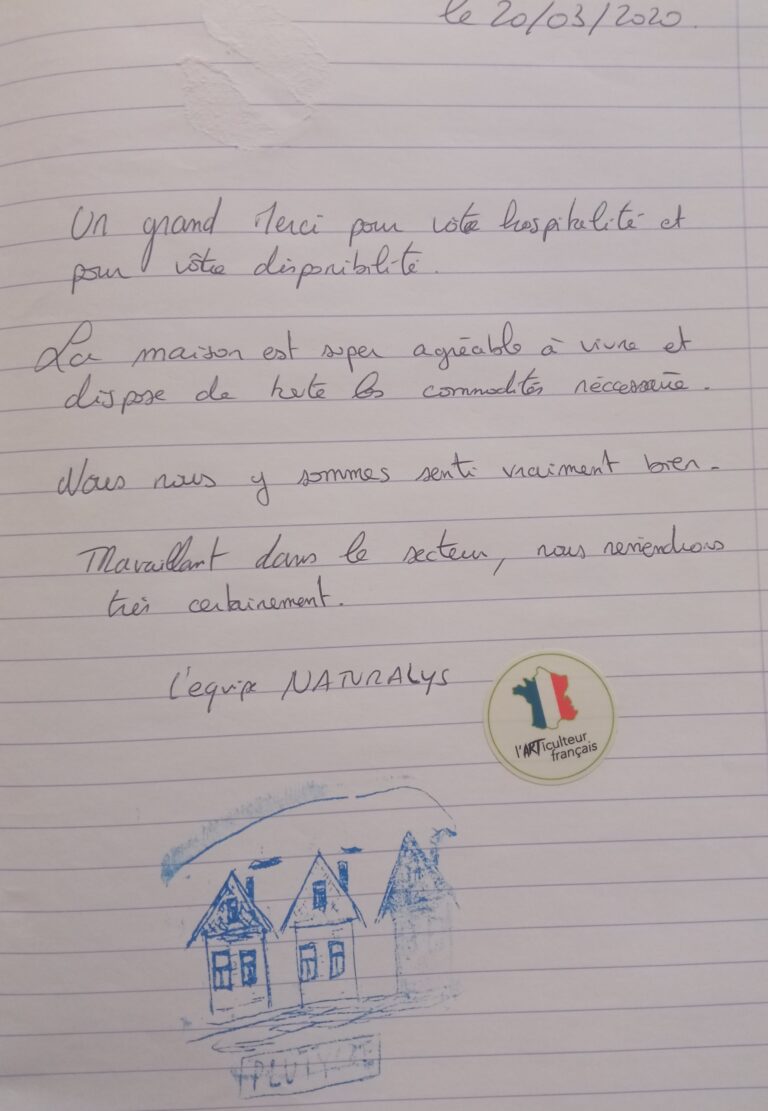 le 20/03/2020.
Un grand Merci pour vôtre hospitalité et
pour vôtre disponibilité.
La maison est super agréable à vivre et
dispose de toute les commodités nécessaire.
Nous nous y sommes senti vraiment bien.
Travaillant dans le secteur, nous reviendrons
très certainement.
L'equipe NATURALYS
l'ARTiculteur
français